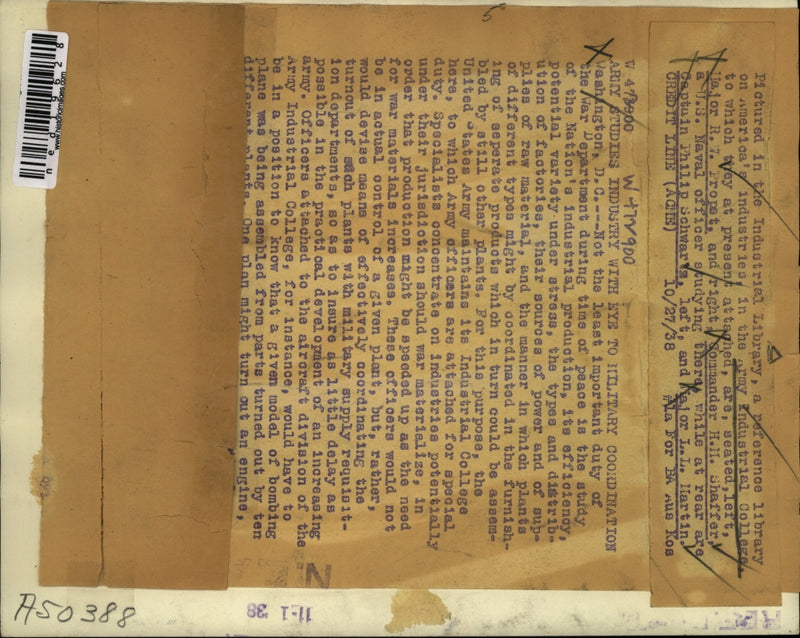 Pictured in the Industrial Library, a reference library
on America's industries, in the Army Industrial College,
to which they at present attached, are, seated, left,
Major R. T. Propst, and right Commander H.H. Shaffer,
a U.S. Naval officer studying there, while at rear are
Captain Philip Schwartz, left, and Major L.L. Martin.
CREDIT LINE (ACME) 10/27/38 Wia For BA Aus Kos
W 473900 W 474900
ARMY STUDIES INDUSTRY WITH EYE TO MILITARY COORDINATION
Washington, D.C.---Not the least important duty of
the War Department during time of peace is the study
of the Nation's industrial production, its efficiency,
potential variety under stress, the types and distrib-
ution of factories, their sources of power and of sup-
plies of raw material, and the manner in which plants
of different types might by coordinated in the furnish-
ing of seperate products which in turn could be assem-
bled by still other plants. For this purpose, the
United States Army maintains its Industrial College
here, to which Army officers are attached for special
duty. Specialists concentrate on industries potentially
under their jurisdiction should war materialize, in
order that production might be speeded up as the need
for war materials increases. These officers would not
be in actual control of a given plant, but, rather,
would devise means of effectively coordinating the
turnout of such plants with military supply requisit-
ion departments, so as to insure as little delay as
possible in the practical development of an increasing
army. Officers attached to the aircraft division of the
Army Industrial College, for instance, would have to
be in a position to know that a given model of bombing
plane was being assembled from parts turned out by ten
different plants. One plan might turn out an engine,
5
ned19628
www.historicimages.com
A50388
11-1 38